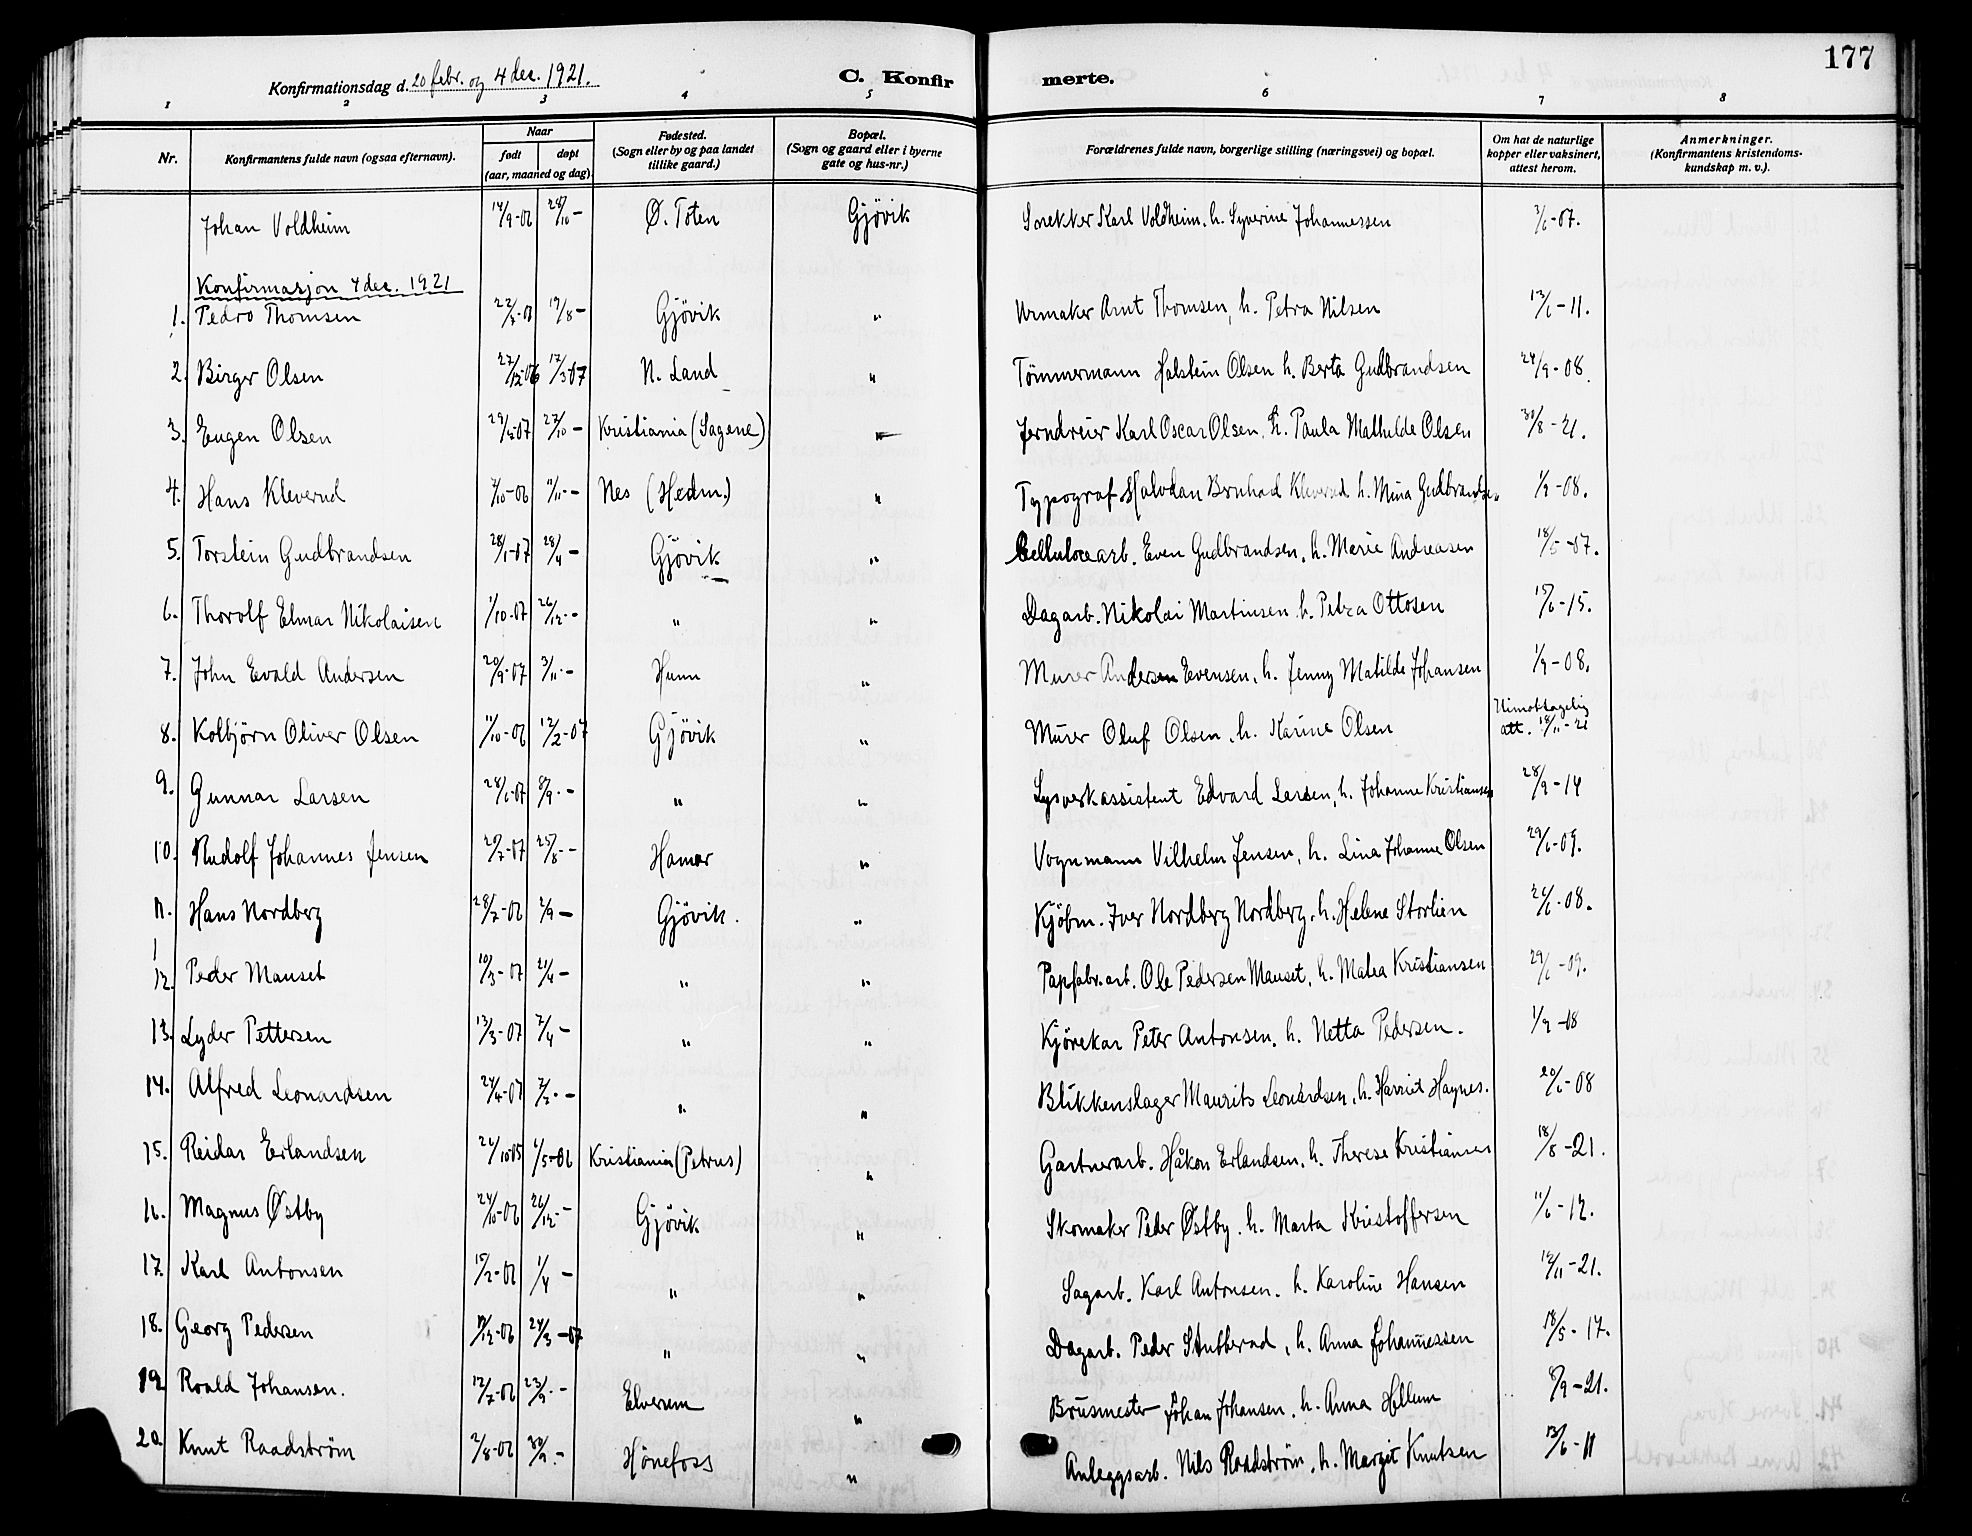 177
Konfirmationsdag d. 20 febr. og 4 dec. 1921.
C. Konfir merte.
1 2 3 4 5 6 7 8
Nr.
Konfirmantens fulde navn (ogsaa efternavn).
Naar
født døpt
(aar, maaned og dag)
Fødested.
(Sogn eller by og paa landet
tillike gaard.)
Bopæl.
(Sogn og gaard eller i byerne
gate og hus-nr.)
Forældrenes fulde navn, borgerlige stilling (næringsvei) og bopæl.
Om hat de naturlige
kopper eller vaksinert,
attest herom.
Anmerkninger.
(Konfirmantens kristendoms-
kundskap m. v.).
Johan Voldheim 14/9-06 28/10 - Ø. Toten Gjövik Snekker Karl Voldheim. h. Syverine Johannessen 3/6-07.
Konfirmasjon 4 dec. 1921
1. Pedro Thomsen 22/7-06 19/8 - Gjövik " Urmaker Arnt Thomsen, h. Petra Nilsen 13/6-11.
2. Birger Olsen 27/12-06 17/3-07 N. Land " Tömmermann Halstein Olsen h. Berta Gudbrandsen 24/9-08.
3. Eugen Olsen 27/10 - Kristiania (Sagene) " Jerndreier Karl Oscar Olsen, h. Paula Mathilde Olsen 30/8-21.
4. Hans Kleverud 7/10-06 11/11 - Nes (Hedm.) " Typograf Halvdan Bernhard Kleverud h. Mina Gudbrandsen 1/9-08.
5. Torstein Gudbrandsen 28/1-07 28/4 - Gjövik " Cellulosearb. Even Gudbrandsen, h. Marie Andreasen 18/5-07.
6. Thorolf Elmar Nikolaisen 1/10-07 26/12 - " " Dagarb. Nikolai Martinsen h. Petra Ottosen 15/6-15.
7. John Evald Andersen 20/9-07 3/11 - Hunn " Murer Andersen Evensen, h. Jenny Matilde Johansen 1/9-08.
8. Kolbjörn Oliver Olsen 11/10-06 12/2-07 Gjövik " Murer Oluf Olsen, h. Karine Olsen Uimottagelig
att. 18/11-21
9. Gunnar Larsen 28/6-07 8/9 - " " Lysverkassistent Edvard Larsen, h. Johanne Kristiansen 28/9-14
10. Rudolf Johannes Jensen 20/7-07 25/8 - Hamar " Vognmann Vilhelm Jensen, h. Lina Johanne Olsen 29/6-09.
11. Hans Nordberg 28/7-06 2/9 - Gjövik. " Kjöbm. Iver Nordberg Nordberg, h. Helene Storlien 26/6-08.
12. Peder Manset 10/3-07 21/4 - " " Papfabr.arb. Ole Pedersen Manset, h. Matea Kristiansen 29/6-09.
13. Lyder Pettersen 13/3-07 7/4 - " " Kjörekar Peter Antonsen, h. Netta Pedersen. 1/9-18
14. Alfred Leonardsen 24/4-07 7/7 - " " Blikkenslager Maurits Leonardsen, h. Harriet Haynes. 20/6-08
15. Reidar Erlandsen 6/5-06 Kristiania (Petrus) " Gartnerarb. Håkon Erlandsen, h. Therese Kristiansen 18/8-21.
16. Magnus Østby 24/10-06 26/12 - Gjövik " Skomaker Peder Østby. h. Marta Kristoffersen 11/6-12.
17. Karl Antonsen 15/2-06 1/4 - " " Sagarb. Karl Antonsen. h. Karoline Hansen 12/11-21.
18. Georg Pedersen 19/12-06 24/3-07 " " Dagarb. Peder Stubberud, h. Anna Johannessen 18/5-17.
19. Roald Johansen. 12/7-06 23/9 - Elverum " Brusmester Johan Johansen, h. Anna Hellum 8/9-21.
20. Knut Raadström 2/8-06 30/9 - Hönefoss " Anleggsarb. Nils Raadström, h. Margit Knutsen 13/6-11